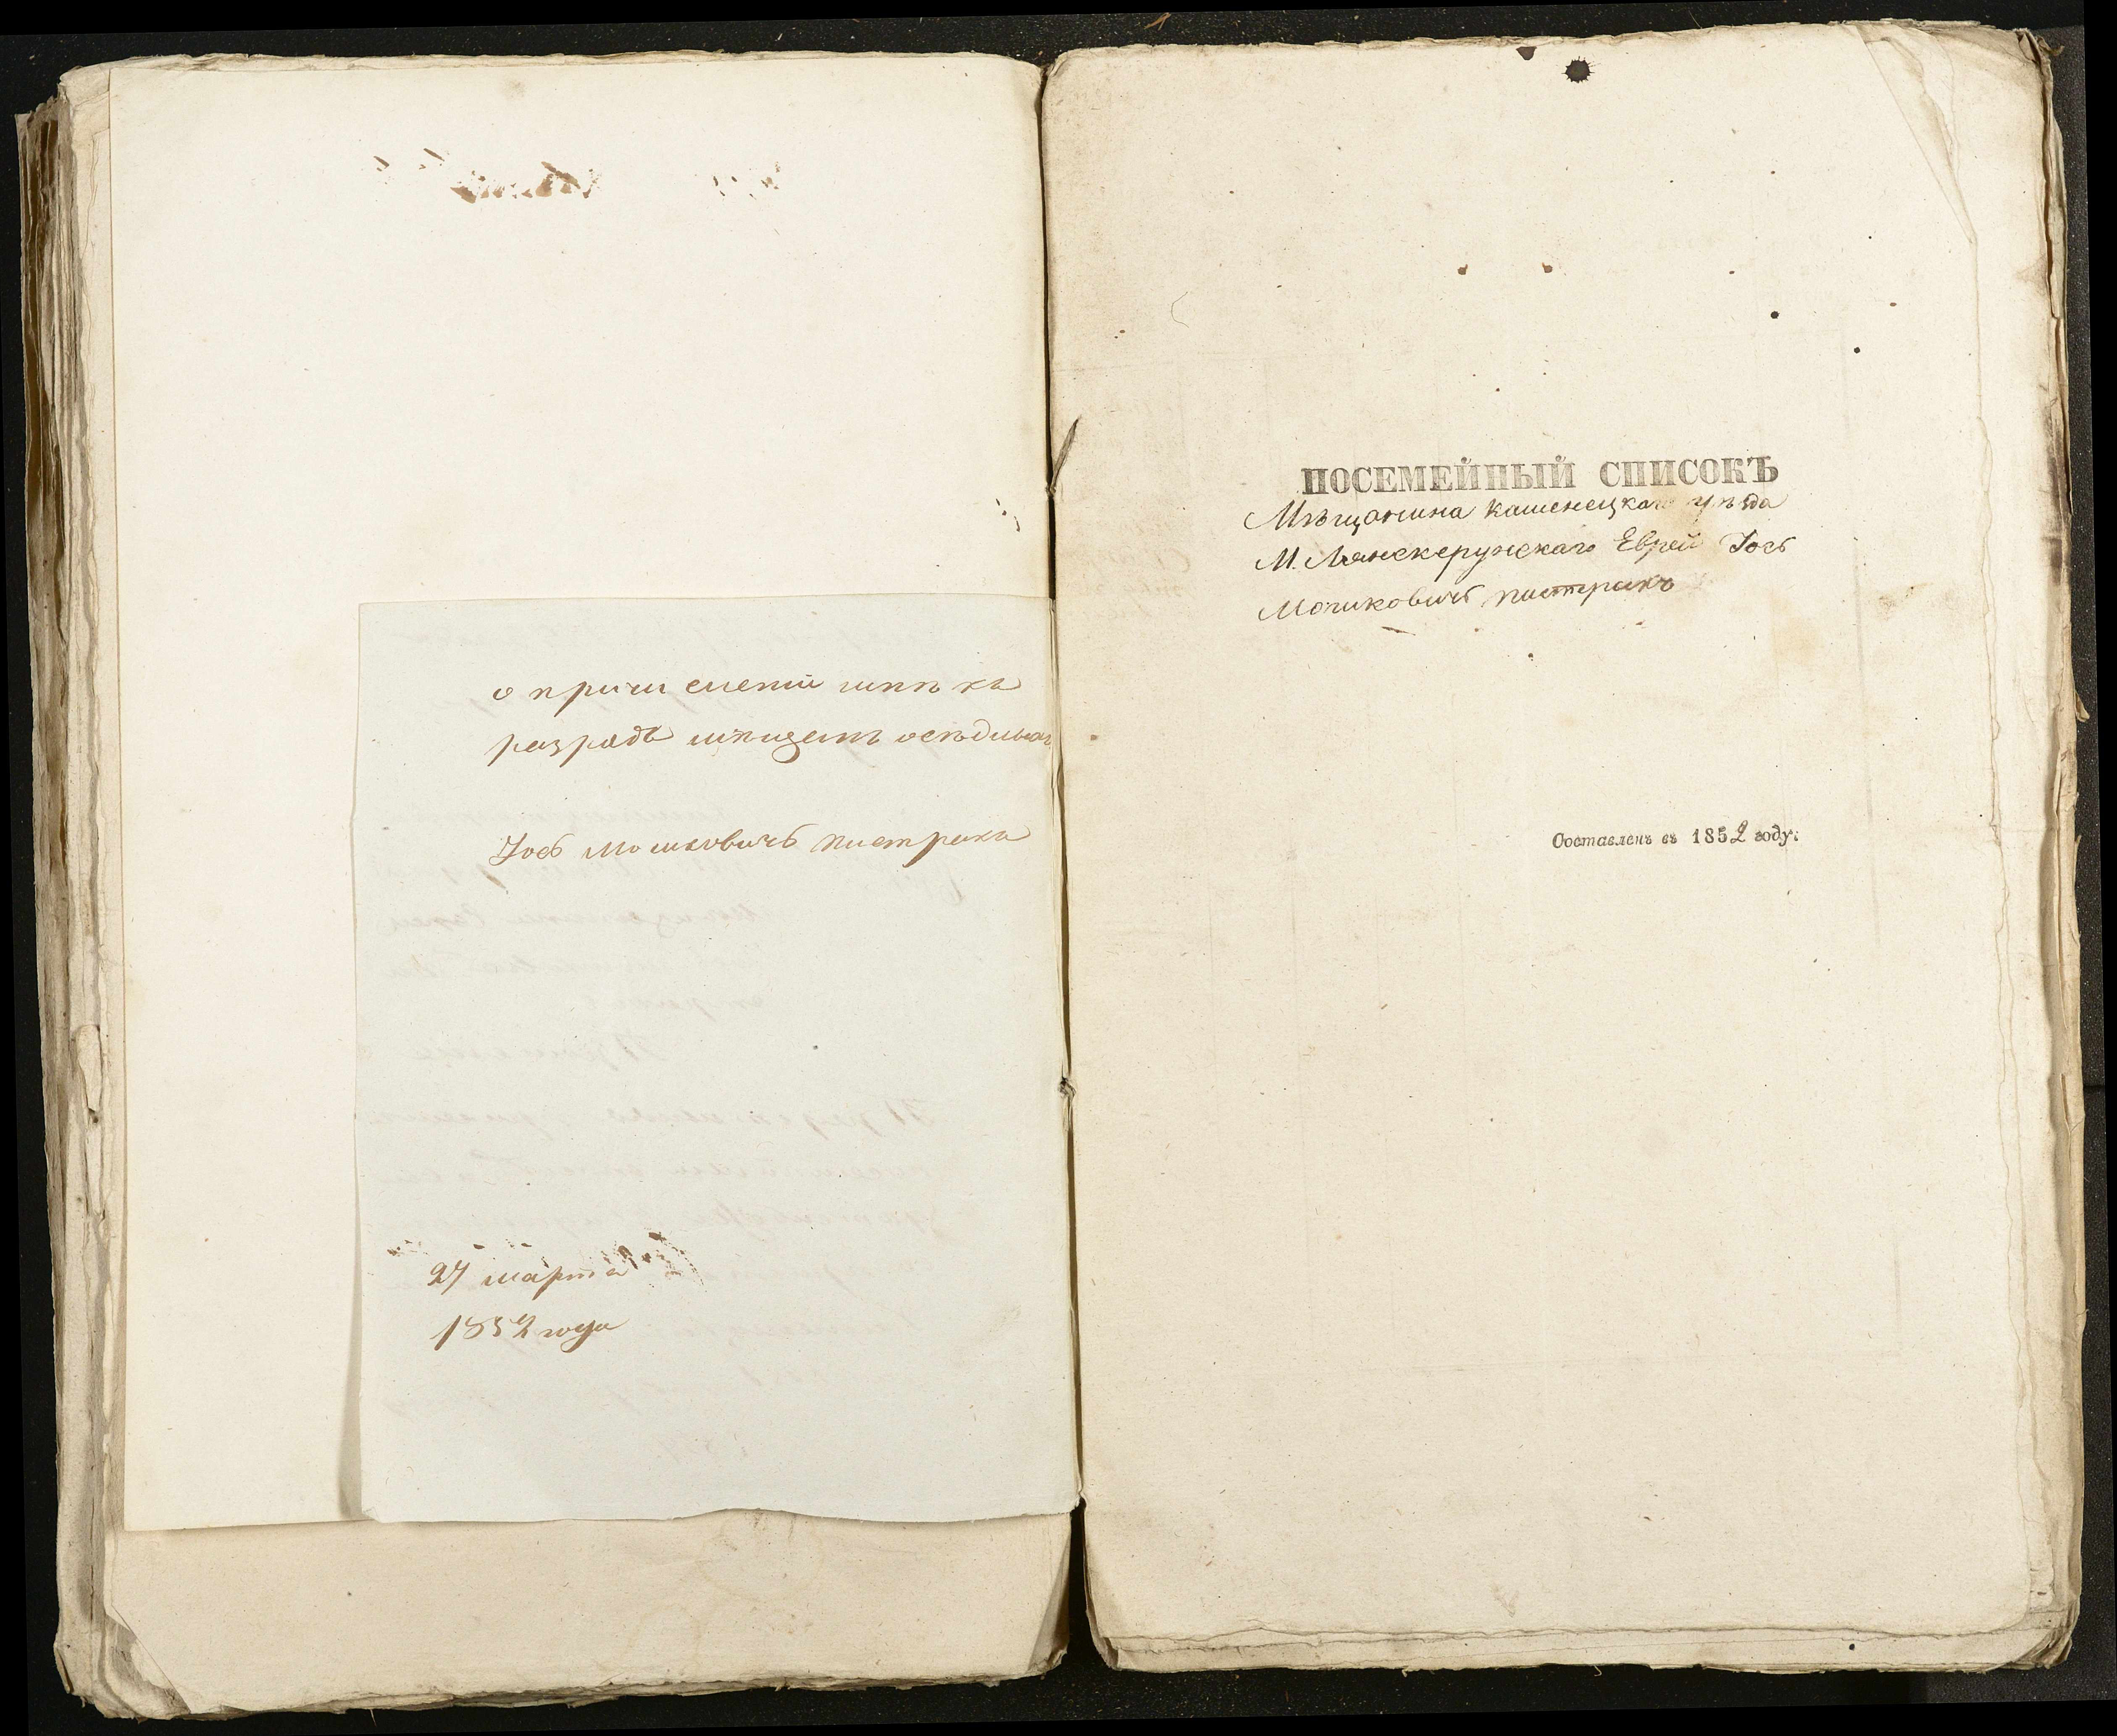 о причислении мѣнѣ къ
разрядъ мѣщанъ осѣдлыхъ
Іось Мошковичъ Пистракъ
27 марта
1852 года
ПОСЕМЕЙНЫЙ СПИСОКЪ
Мѣщанина каменецкаго уѣзда
М. Лянскерунскаго Еврей Іось
Мошковичъ пистракъ
Составленъ въ 1852 году.